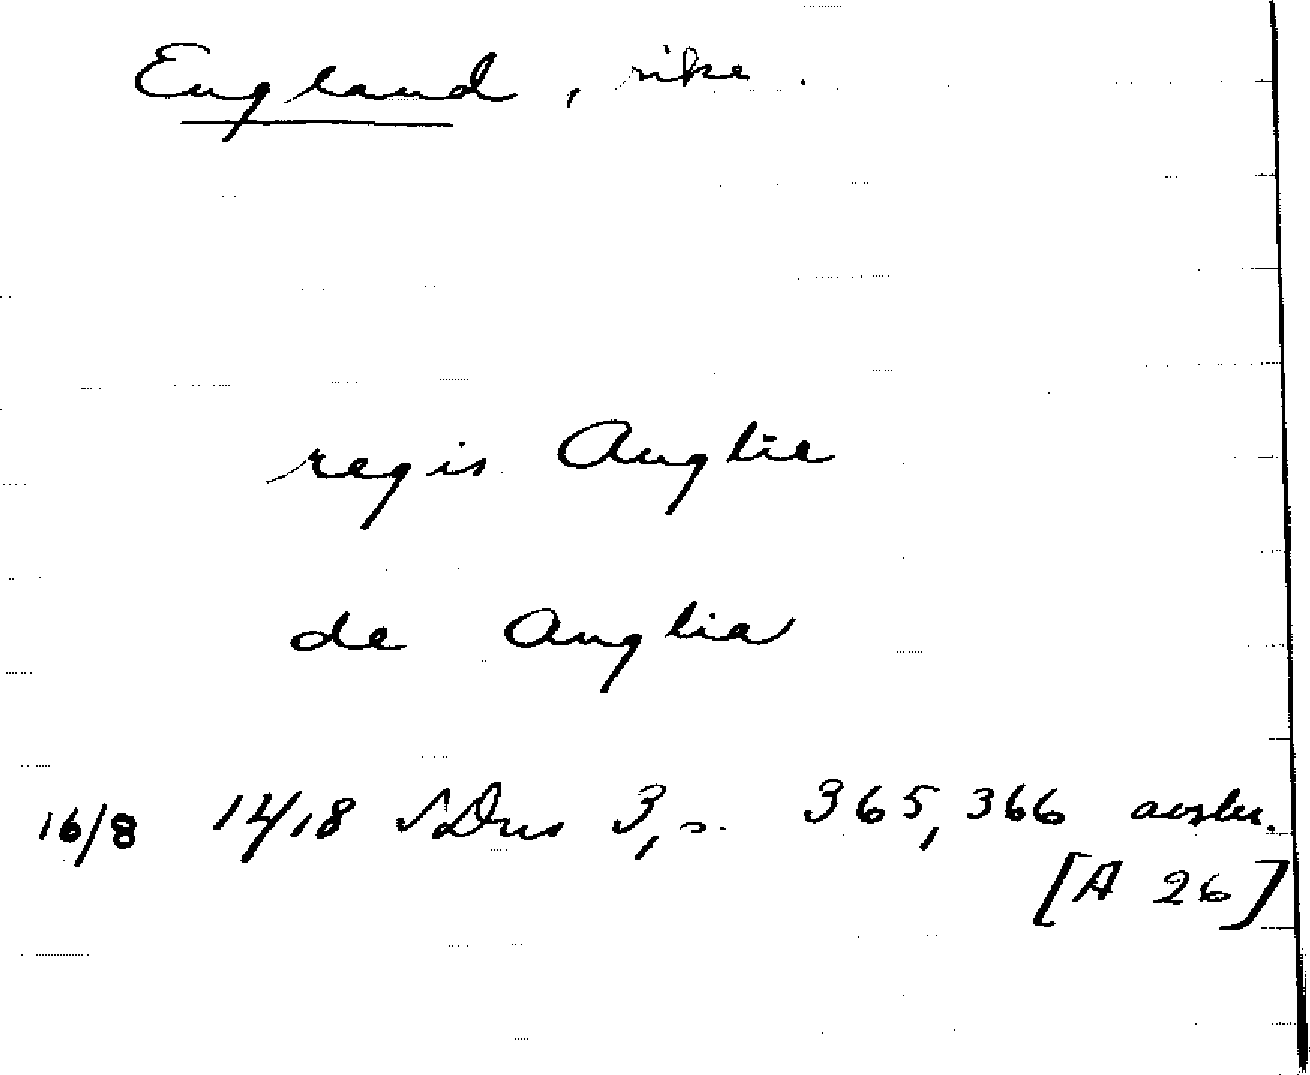 England, rike.
regis Anglie
de Anglia
16/8 1418 SDns 3, s. 365, 366 avskr.
[A 26]